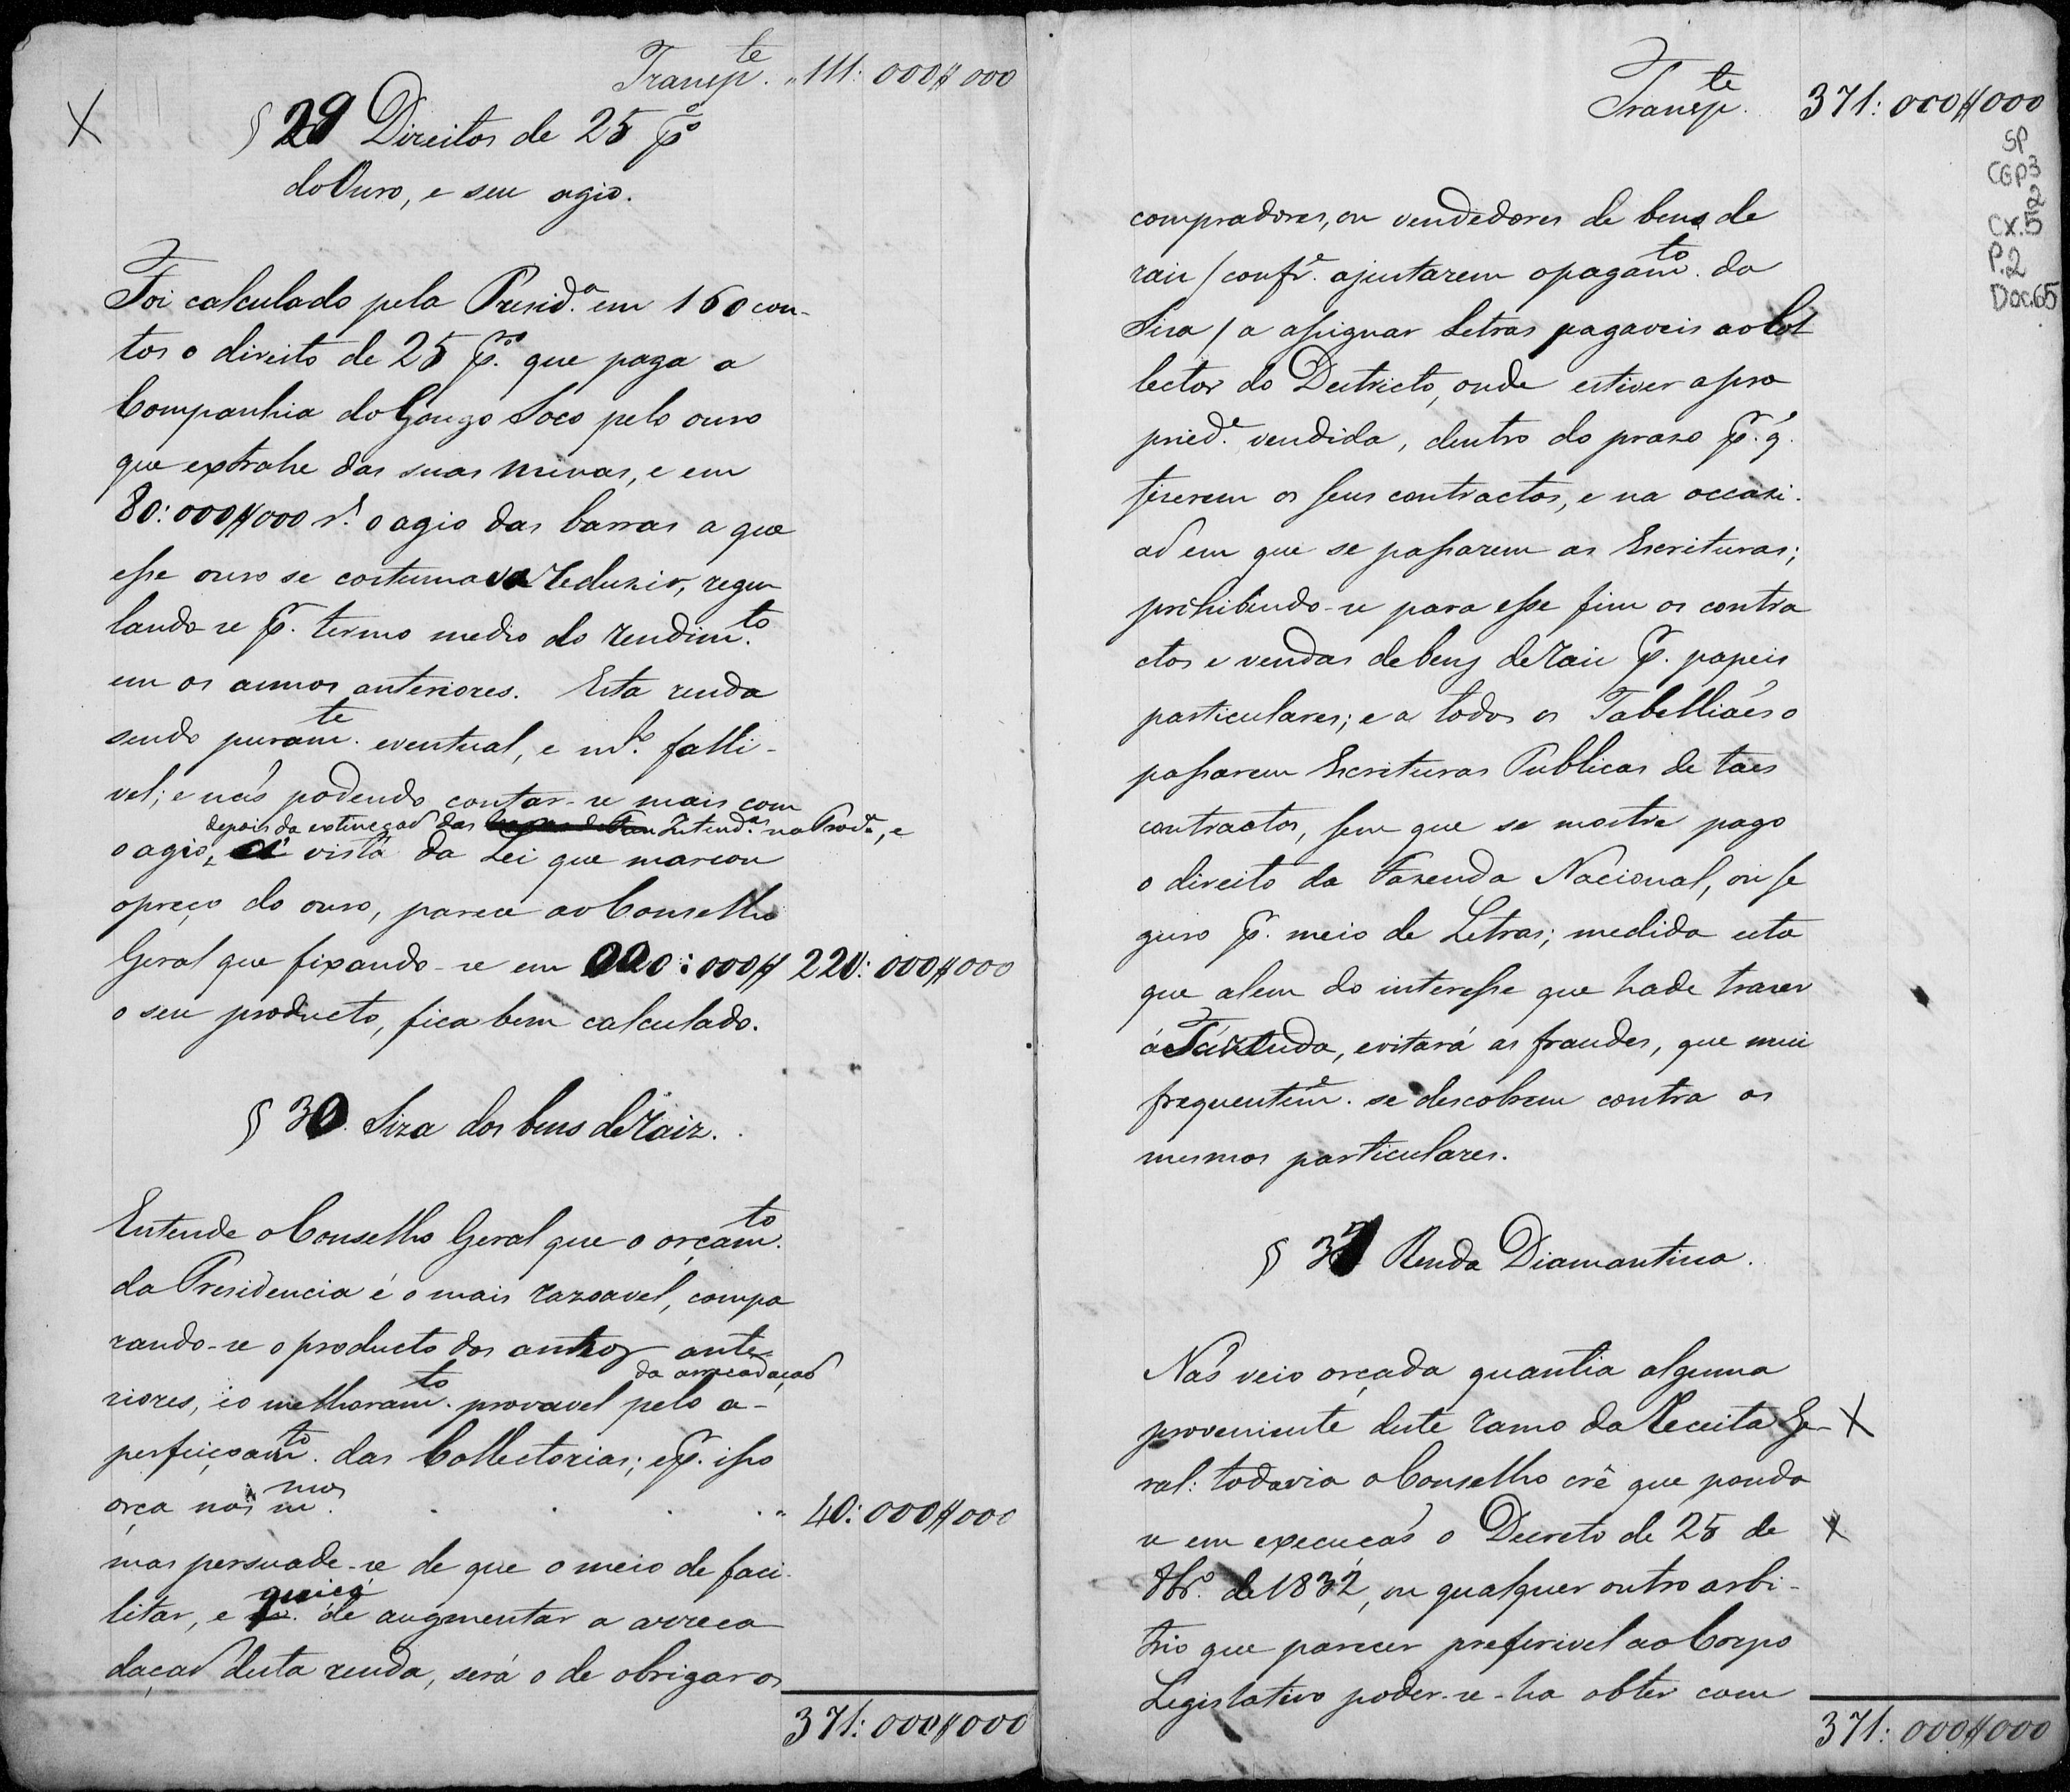 Transp.te " 111:000$000
X
§ 29 Direitos de 25 p.º
do Ouro, e seu agio.
Foi calculado pela Presid.ª em 160 con-
tos o direito de 25 p.º que paga a
Companhia do Gongo Soco pelo ouro
que extrahe das suas minas, e em
80:000$000 r.s o agio das barras a que
esse ouro se costumava redusir, regu
lando-se p.r termo medio do rendim.to
em os annos anteriores. Esta renda
sendo puram.te eventual, e m.to falli-
vel; e não podendo contar-se mais com
depois da extincção das Intend.as na Prov.ª, e
o agio, á vista da Lei que marcou
o preço do ouro, parece ao Conselho
Geral que fixando-se em 220:000$ 220:000$000
o seu producto, fica bem calculado.
§ 30. Siza dos bens de raiz.
Entende o Conselho Geral que o orçam.to
da Presidencia é o mais razoavel, compa
rando-se o producto dos annos ante-
da arrecadação
riores, e o melhoram.to provavel pelo a-
perfeiçoam.to das Collectorias; e p.r isso
orça nos m.mos . . . " 40:000$000
mas persuade-se de que o meio de faci-
quiçá
litar, e de augmentar a arreca
dação desta renda, será o de obrigar os
371:000$000
Transp.te 371:000$000
SP
CGP3
2
Cx.5
P.2
Doc.65
compradores, ou vendedores de bens de
raiz / conf.e ajustarem o pagam.to da
Siza / a assignar Letras pagaveis ao Col
lector do Destricto, onde estiver a pro
pried.e vendida, dentro do praso p.r q.
fizerem os seus contractos, e na occasi-
aõ em que se passarem as Escrituras;
prohibindo-se para esse fim os contra
ctos e vendas de bens de raiz p.r papeis
particulares; e a todos os Tabelliães o
passarem Escrituras Publicas de taes
contractos, sem que se mostre pago
o direito da Fazenda Nacional, ou se
guro p.r meio de Letras; medida esta
que alem do interesse que hade trazer
á Fazenda, evitará as fraudes, que mui
frequentem.e se descobrem contra os
mesmos particulares.
§ 31 Renda Diamantina.
Não veio orçada quantia alguma
proveniente deste ramo da Receita Ge- X
ral: todavia o Conselho crê que pondo
se em execução o Decreto de 25 de X
8br.o de 1832, ou qualquer outro arbi-
trio que parecer preferivel ao Corpo
Legislativo poder-se-ha obter com
371:000$000